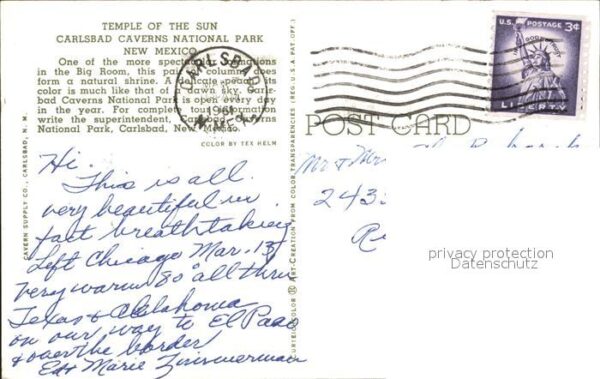 TEMPLE OF THE SUN
CARLSBAD CAVERNS NATIONAL PARK
NEW MEXICO
One of the more spectacular formations
in the Big Room, this column does
form a natural shrine. A delicate
color is much like that of a dawn sky. Carls-
bad Caverns National Park is open every day
in the year. For complete tour information
write the superintendent, Carlsbad Caverns
National Park, Carlsbad, New Mexico.
COLOR BY TEX HELM
CAVERN SUPPLY CO., CARLSBAD, N. M.
Hi.
This is all
very beautiful in
fact breathtaking
Left Chicago Mar. 13
Very warm 80° all thru
Texas & Oklahoma
on our way to El Paso
& over the border
Ed & Marie Zimmerman
COLOR CREATION FROM COLOR TRANSPARENCIES (REG. U.S.A. PAT. OFF.)
CARLSBAD
1961
N. MEX.
U.S. POSTAGE 3¢
IN GOD WE TRUST
LIBERTY
POST CARD
Mr & Mrs
243
privacy protection
Datenschutz